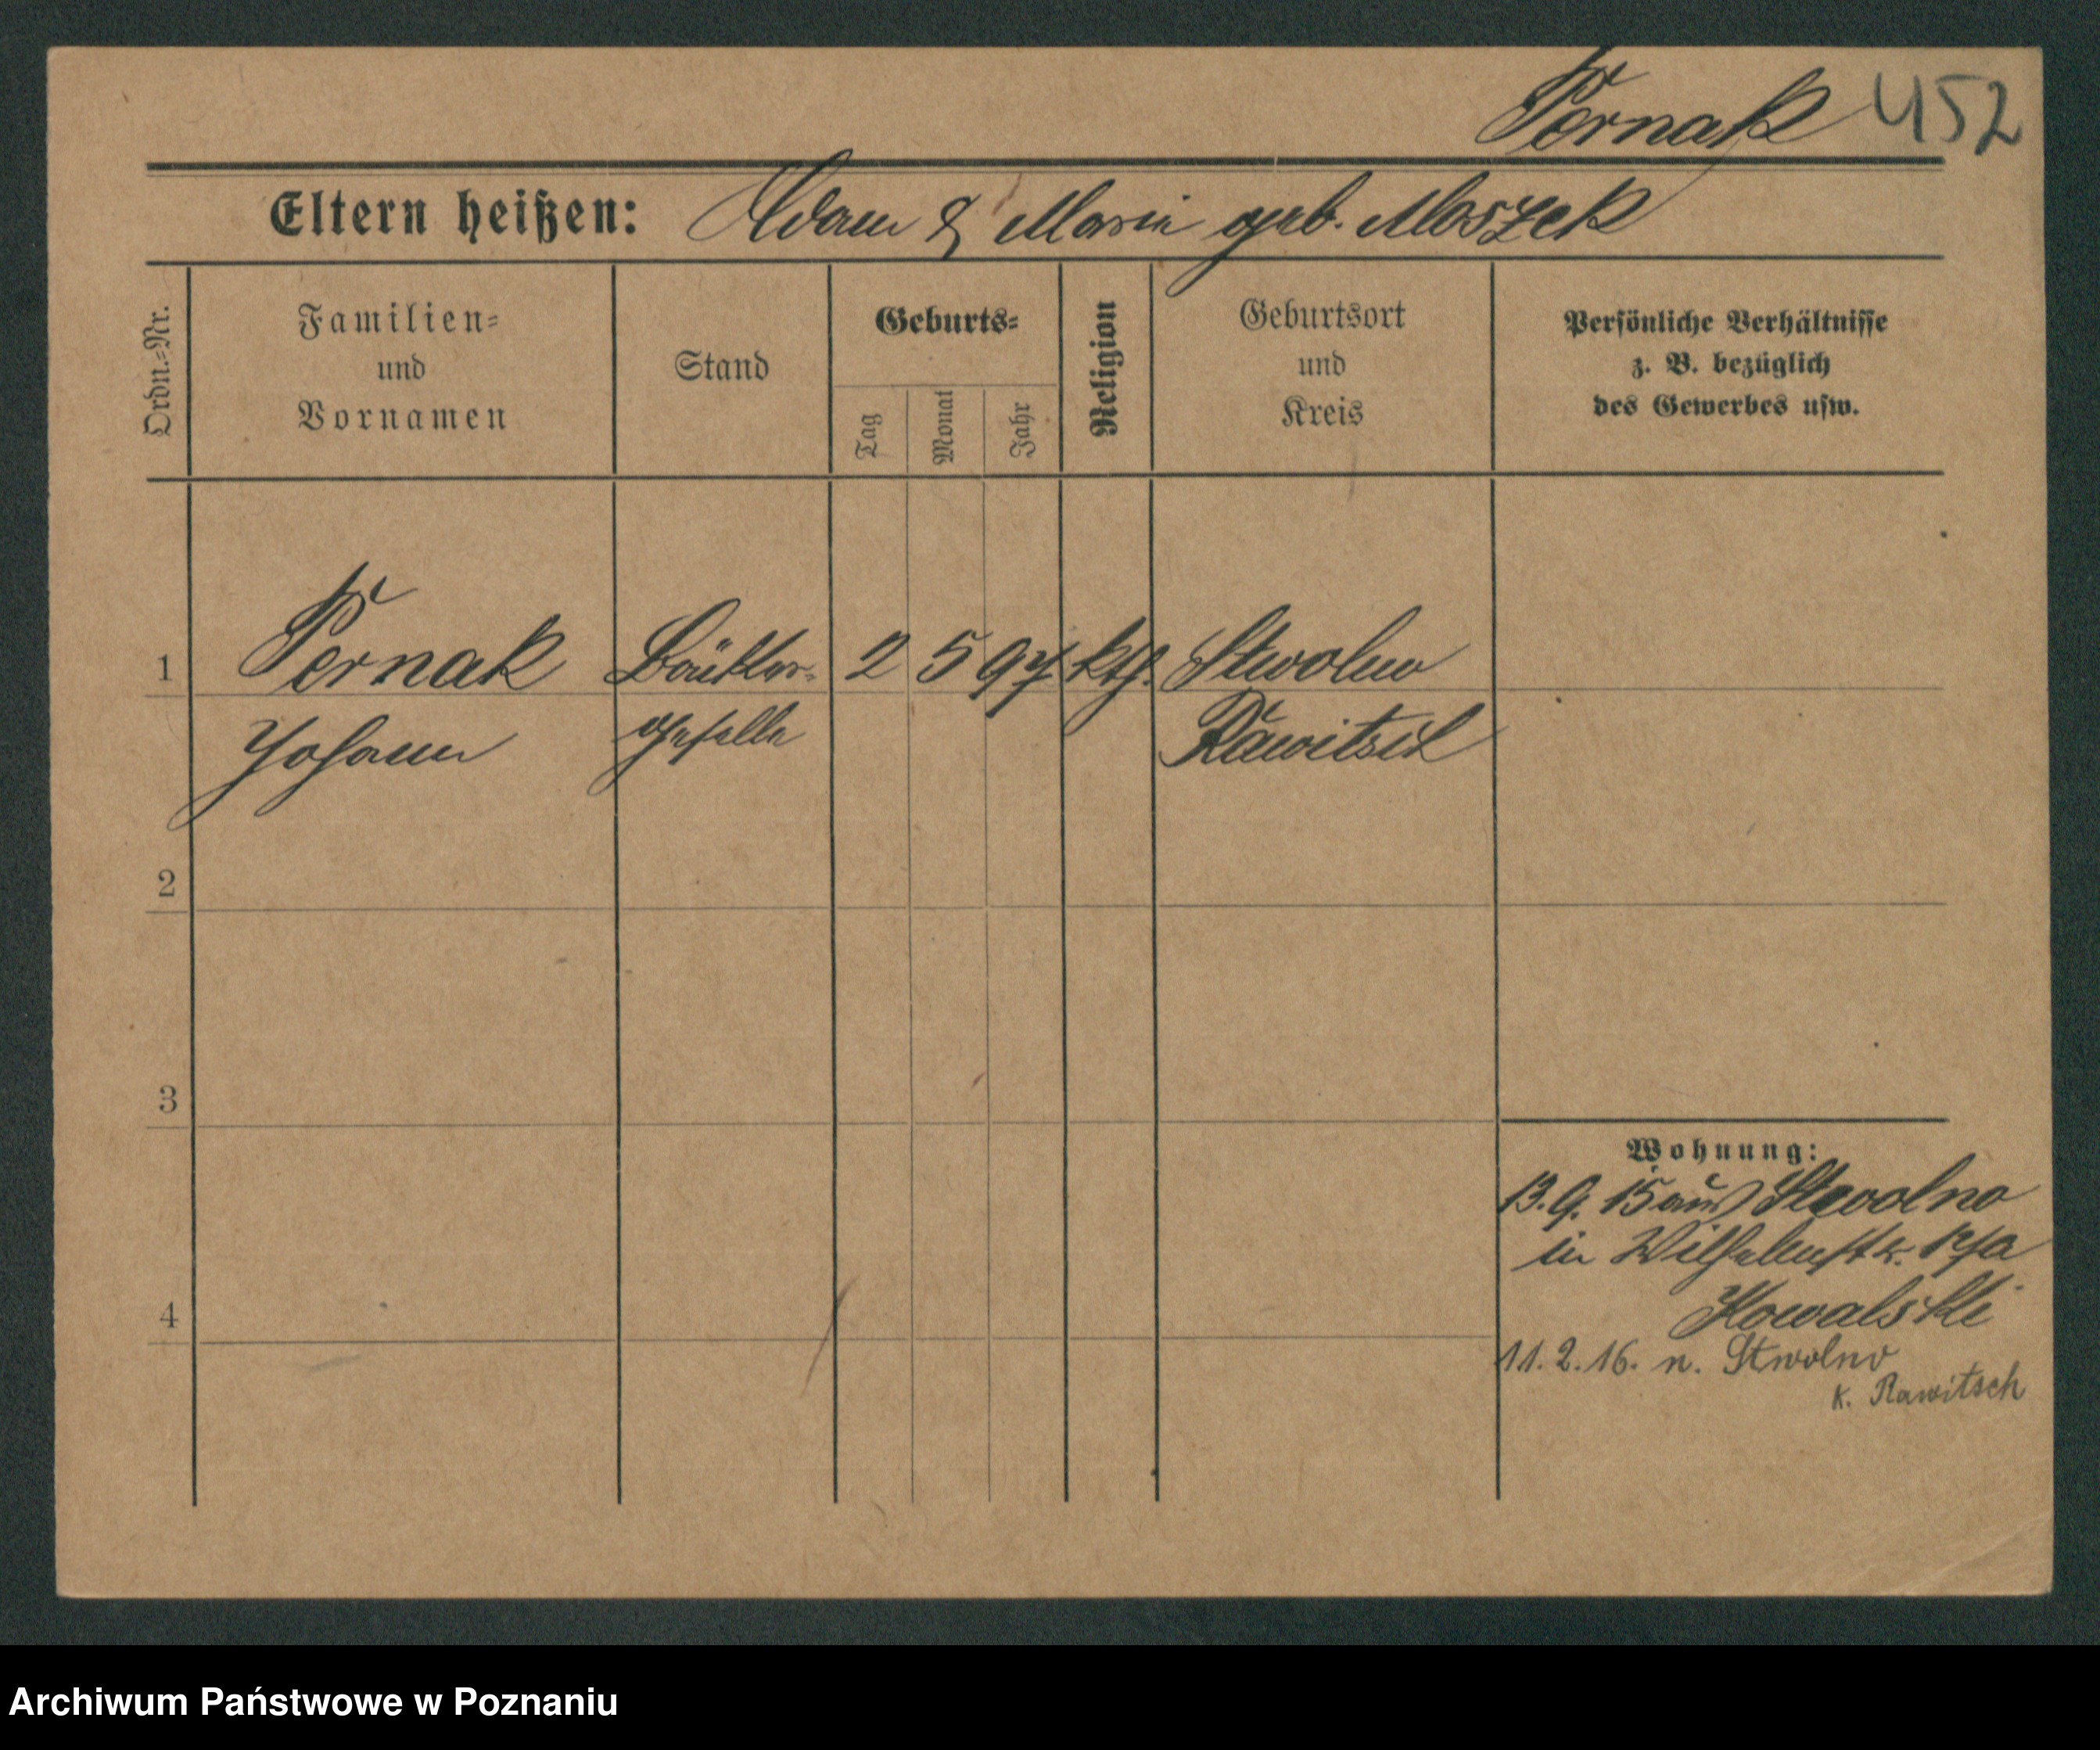 Pernak 452
Eltern heißen: Adam & Marie geb. Moszek
Ordn.-Nr.
Familien-
und
Vornamen
Stand
Geburts-
Tag
Monat
Jahr
Religion
Geburtsort
und
Kreis
Persönliche Verhältnisse
z. B. bezüglich
des Gewerbes usw.
1 Pernak Böttcher- 2 5 97 kth. Stwolno
Johann geselle Rawitsch
2
3
4
Wohnung:
13.9.15 aus Stwolno
in Wilhelmstr. 17a
Kowalski
11.2.16. n. Stwolno
K. Rawitsch
Archiwum Państwowe w Poznaniu